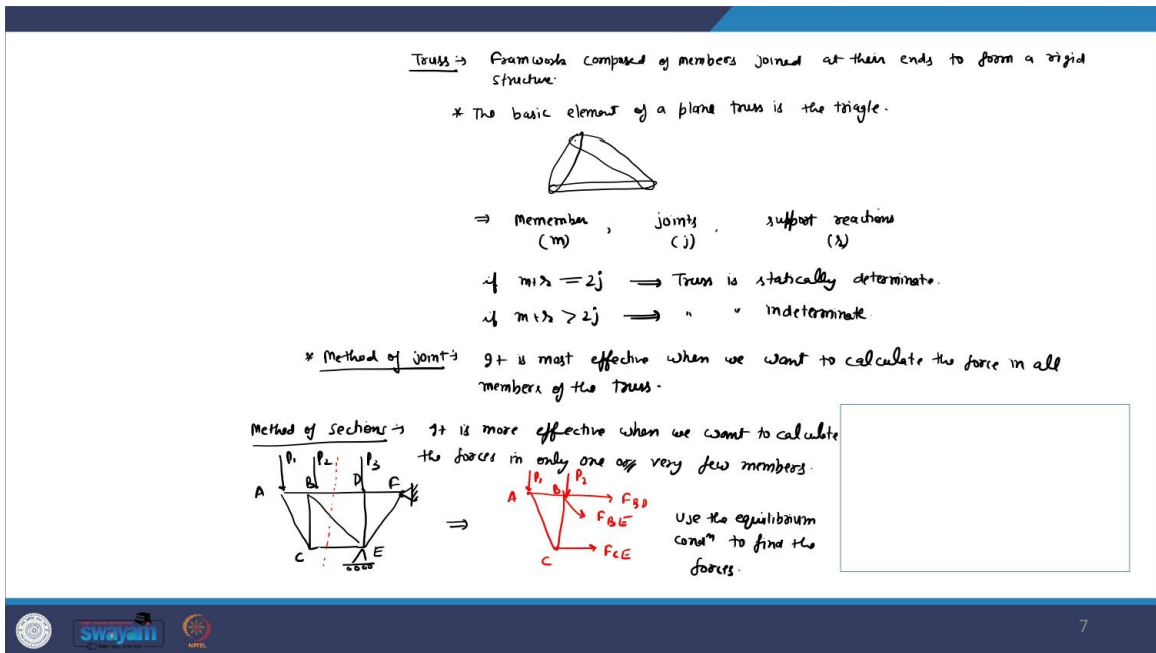 Truss → Framwork composed of members joined at their ends to form a rigid
structure.
* The basic element of a plane truss is the triagle.
⇒ Memember , joints , support reactions
(m) (j) (r)
if m+r = 2j ⟶ Truss is statically determinate.
if m+r > 2j ⟶ " " indeterminate.
* Method of joint → It is most effective when we want to calculate the force in all
members of the truss.
Method of sections → It is more effective when we want to calculate
the forces in only one or very few members.
P1 P2 P3
A B D F
C E
⇒
P1 P2
A B FBD
FBE
C FCE
Use the equilibrium
condn to find the
forces.
swayam
NPTEL
7